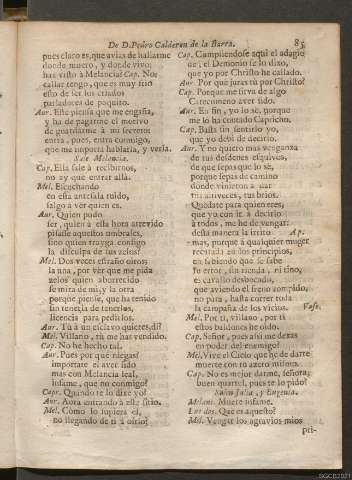 De D. Pedro Calderon de la Barca. 85
pues claro es, que avias de hallarme
donde muero, y donde vivo;
has visto à Melancia? Cap. No:
callar tengo, que es muy frio
esto de ser los criados
parladores de poquito.
Aur. Este piensa que me engaña,
y ha de pagarme el motivo
de guardarme à mi secreto:
entra, pues, entra conmigo,
que me importa hablarla, y verla.
Sale Melancia.
Cap. Ella sale à recibirnos,
no ay que entrar allà.
Mel. Escuchando
en esta antesala ruido,
salgo à vèr quien es.
Aur. Quien pudo
ser, quien à esta hora atrevido
pisasse aquestos umbrales,
sino quien trayga consigo
la disculpa de sus zelos?
Mel. Dos veces estraño oiros;
la una, por vèr que me pida
zelos quien aborrecido
se mira de mi, y la otra
porque piense, que ha tenido
sin tenerla de tenerlos,
licencia para pedirlos.
Aur. Tù à un esclavo quieres, di?
Mel. Villano, tù me has vendido.
Cap. No he hecho tal.
Aur. Pues por què niegas?
importate el aver sido
mas con Melancia leal,
infame, que no conmigo?
Cap. Quando te lo dixe yo?
Aur. Aora entrando à este sitio.
Mel. Còmo lo supiera èl,
no llegando de ti à oirlo?
Cap. Cumpliendose aqui el adagio
de, el Demonio se lo dixo,
que yo por Christo he callado.
Aur. Por què juras tù por Christo?
Cap. Porque me sirva de algo
Catecumeno aver sido.
Aur. En fin, yo lo sè, porque
me lo ha contado Capricho.
Cap. Basta sin sentirlo yo,
que yo debì de decirlo.
Aur. Y no quiero mas venganza
de tus desdenes esquivos,
de que sepas que lo sè,
porque sepas de camino
donde vinieron à dar
tus altiveces, tus brios.
Quedate para quien eres,
que yo con ir à decirlo
à todos, me he de vengar:
desta manera la irrito Ap.
mas, porque à qualquier muger
recatada en los principios,
en sabiendo que se sabe
su error, sin rienda, ni tino,
es cavallo desbocado,
que aviendo el freno rompido,
no para, hasta correr toda
la campaña de los vicios. Vase.
Mel. Por ti, villano, por ti
estos baldones he oido.
Cap. Señor, pues assi me dexas
en poder del enemigo?
Mel. Vive el Cielo que he de darte
muerte con tu azero mismo.
Cap. No es mejor darme, señora,
buen quartel, pues te lo pido?
Salen Julia, y Eugenia.
Melanc. Muere infame.
Las dos. Que es aquesto?
Mel. Vengar los agravios mios
pri-
SGCB2021